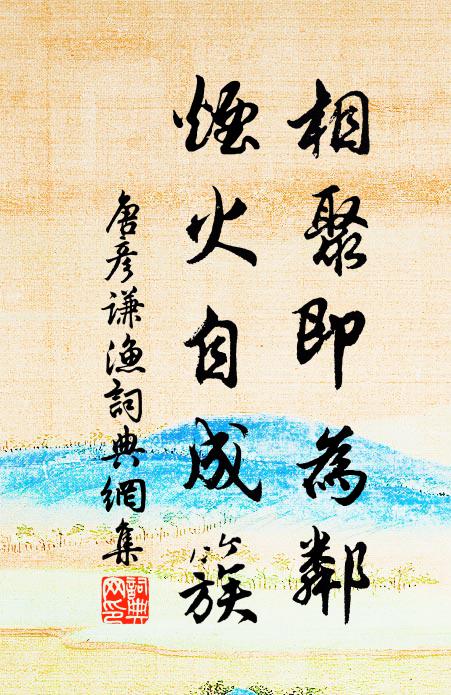 相聚即為鄰
煙火自成簇
唐彥謙漁詞典網集
詞典